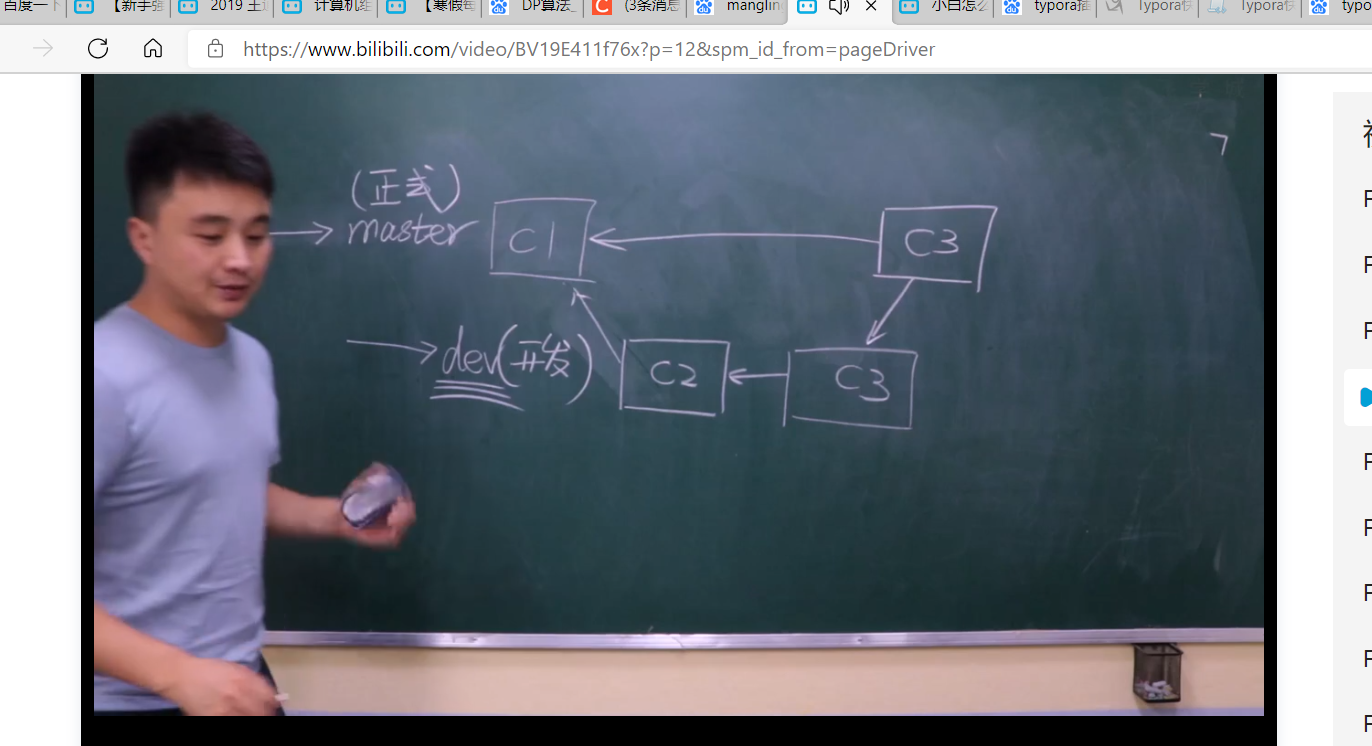 百度一下
【新手强
2019 王道
计算机组
【寒假每
DP算法_
(3条消息
mangling
小白怎么
typora插
Typora快
Typora快
typo
https://www.bilibili.com/video/BV19E411f76x?p=12&spm_id_from=pageDriver
(正式)
master C1 C3
dev(开发) C2 C3
P
P
P
P
P
P
P
P